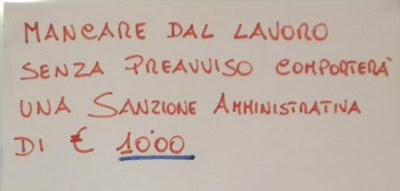 MANCARE DAL LAVORO
SENZA PREAVVISO COMPORTERÀ
UNA SANZIONE AMMINISTRATIVA
DI € 10'00